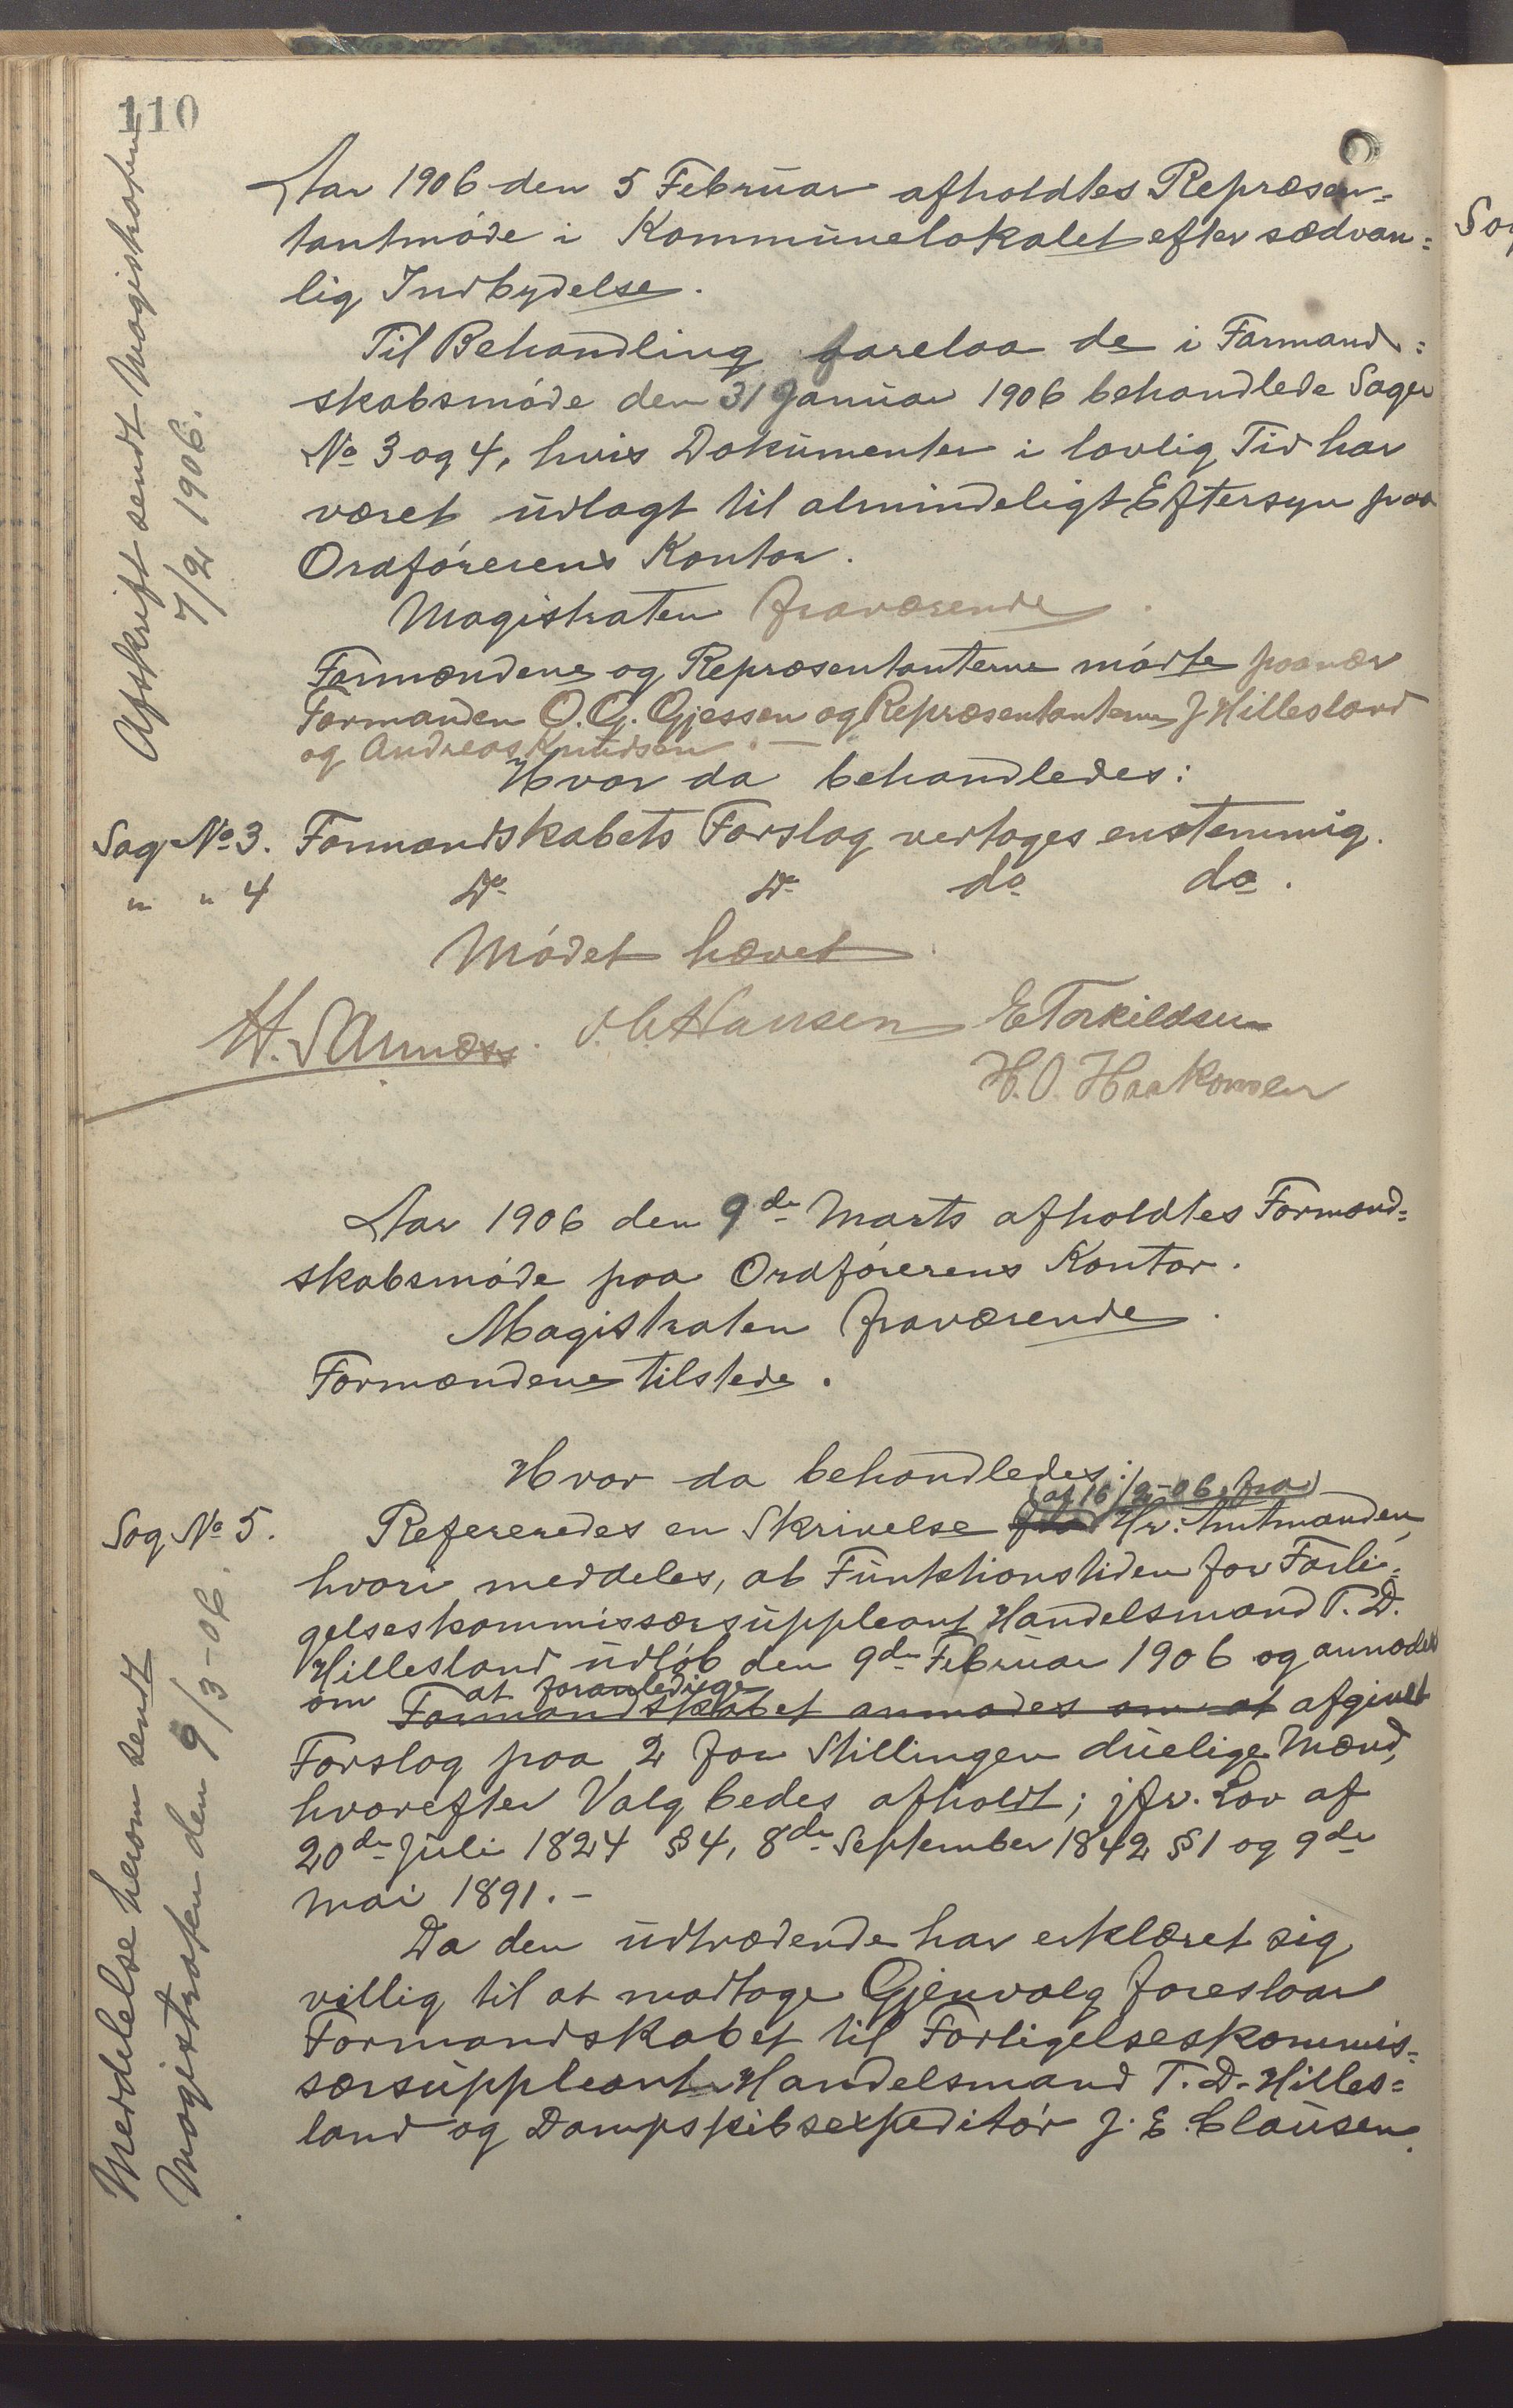 110
Afskrift sendt Magistraten
7/2 1906.
Aar 1906 den 5 Februar afholdtes Repræsen=
tantmøde i Kommunelokalet efter sædvan=
lig Indbydelse.
Til Behandling forelaa de i Formand=
skabsmøde den 31 Januar 1906 behandlede Sager
No 3 og 4, hvis Dokumenter i lovlig Tid har
været udlagt til almindeligt Eftersyn paa
Ordførerens Kontor.
Magistraten fraværende.
Formændene og Repræsentanterne mødte paa nær
Formanden O. G. Gjessen og Repræsentanterne J Hillesland
og Andreas Knudsen. —
Hvor da behandledes:
Sag No 3. Formandskabets Forslag vertoges enstemmig.
" " 4 Do Do do do.
Mødet hævet
H. S Aarnæss. O. C. Hansen E Torkildsen
H. O. Haakonsen
Aar 1906 den 9de Marts afholdtes Formand=
skabsmøde paa Ordførerens Kontor.
Magistraten fraværende.
Formændene tilstede.
Hvor da behandledes:
(af 16/2-06, fra)
Sag No 5. Refereredes en Skrivelse fra Hr. Amtmanden,
hvori meddeles, at Funktionstiden for Forli=
gelseskommissærsuppleant Handelsmand T. D.
Hillesland udløb den 9de Februar 1906 og anmodes
om at foranledige
Formandskabet anmodes om at afgivet
Forslag paa 2 for Stillingen duelige Mænd,
hvorefter Valg bedes afholdt; jfr. Lov af
20de Juli 1824 § 4, 8de September 1842 § 1 og 9de
Mai 1891. -
Da den udtrædende har erklæret sig
villig til at modtage Gjenvalg foreslaar
Formandskabet til Forligelseskommis=
særsuppleant Handelsmand T. D. Hilles=
land og Dampskibsexpeditør J. E. Clausen.
Meddelelse herom sendt
Magistraten den 9/3-06.
So